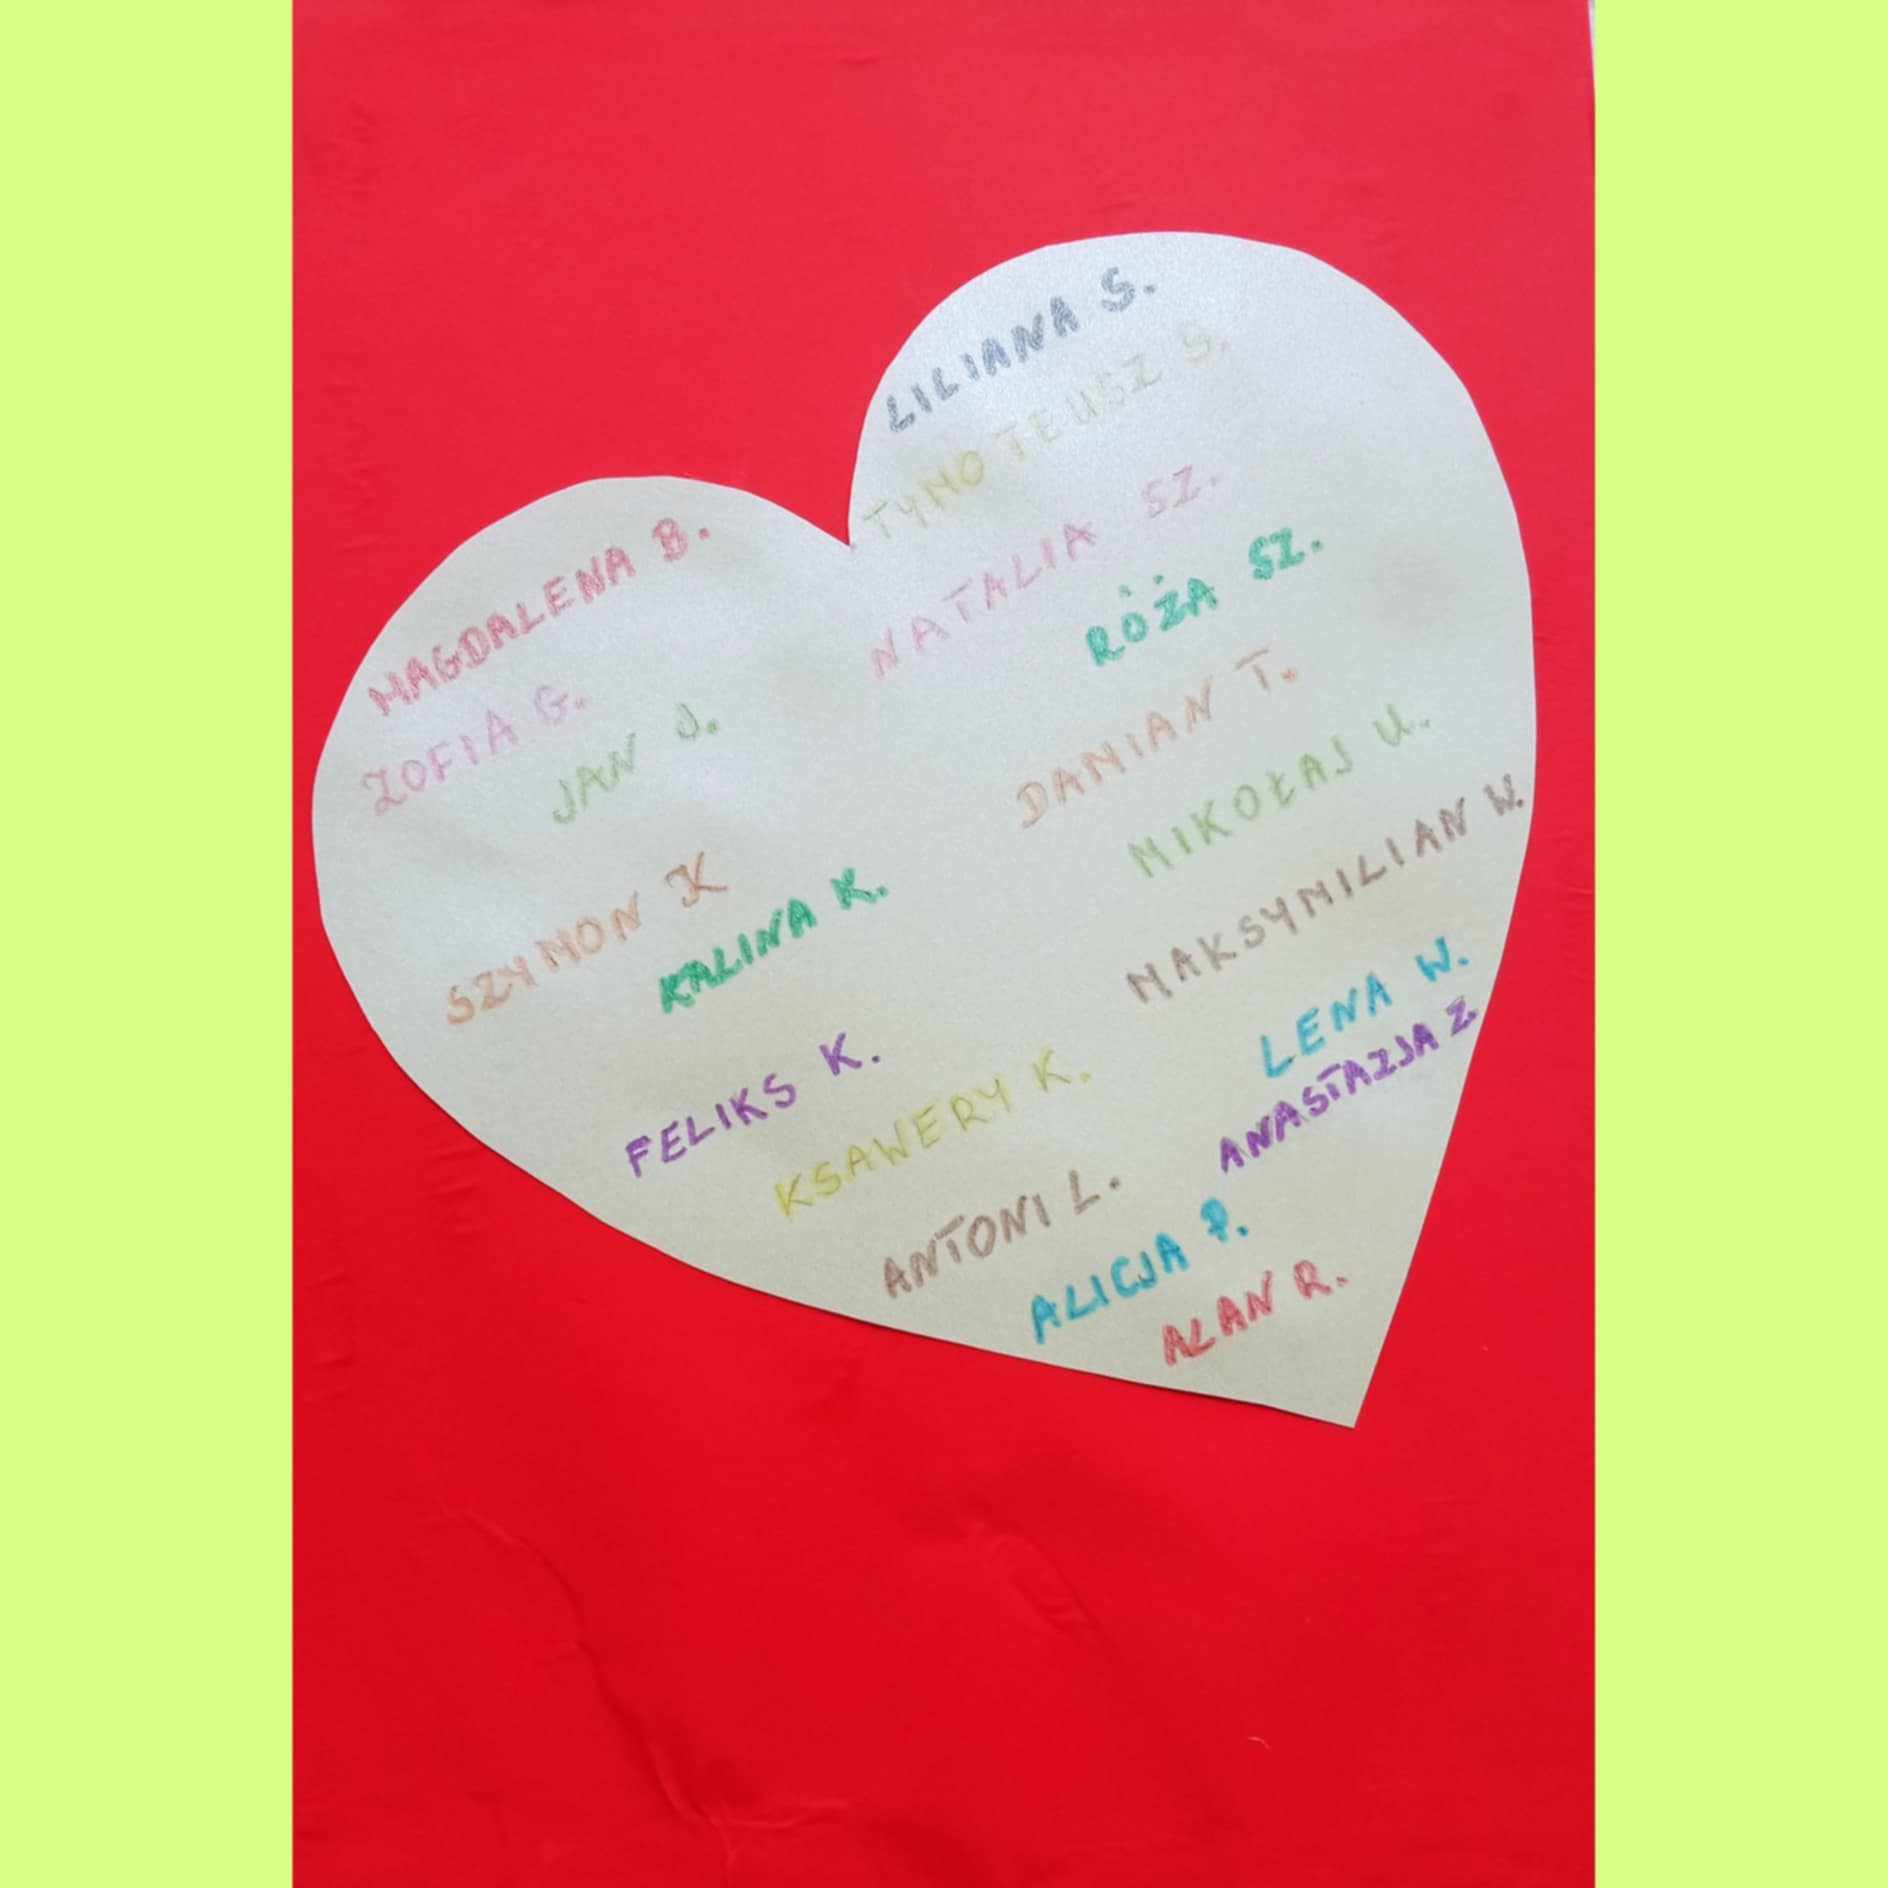 MAGDALENA B.
ZOFIA G.
JAN J.
SZYMON K
KALINA K.
FELIKS K.
KSAWERY K.
ANTONI L.
ALICJA P.
ALAN R.
LILIANA S.
TYMOTEUSZ S.
NATALIA SZ.
RÓŻA SZ.
DAMIAN T.
MIKOŁAJ U.
MAKSYMILIAN W.
LENA W.
ANASTAZJA Z.